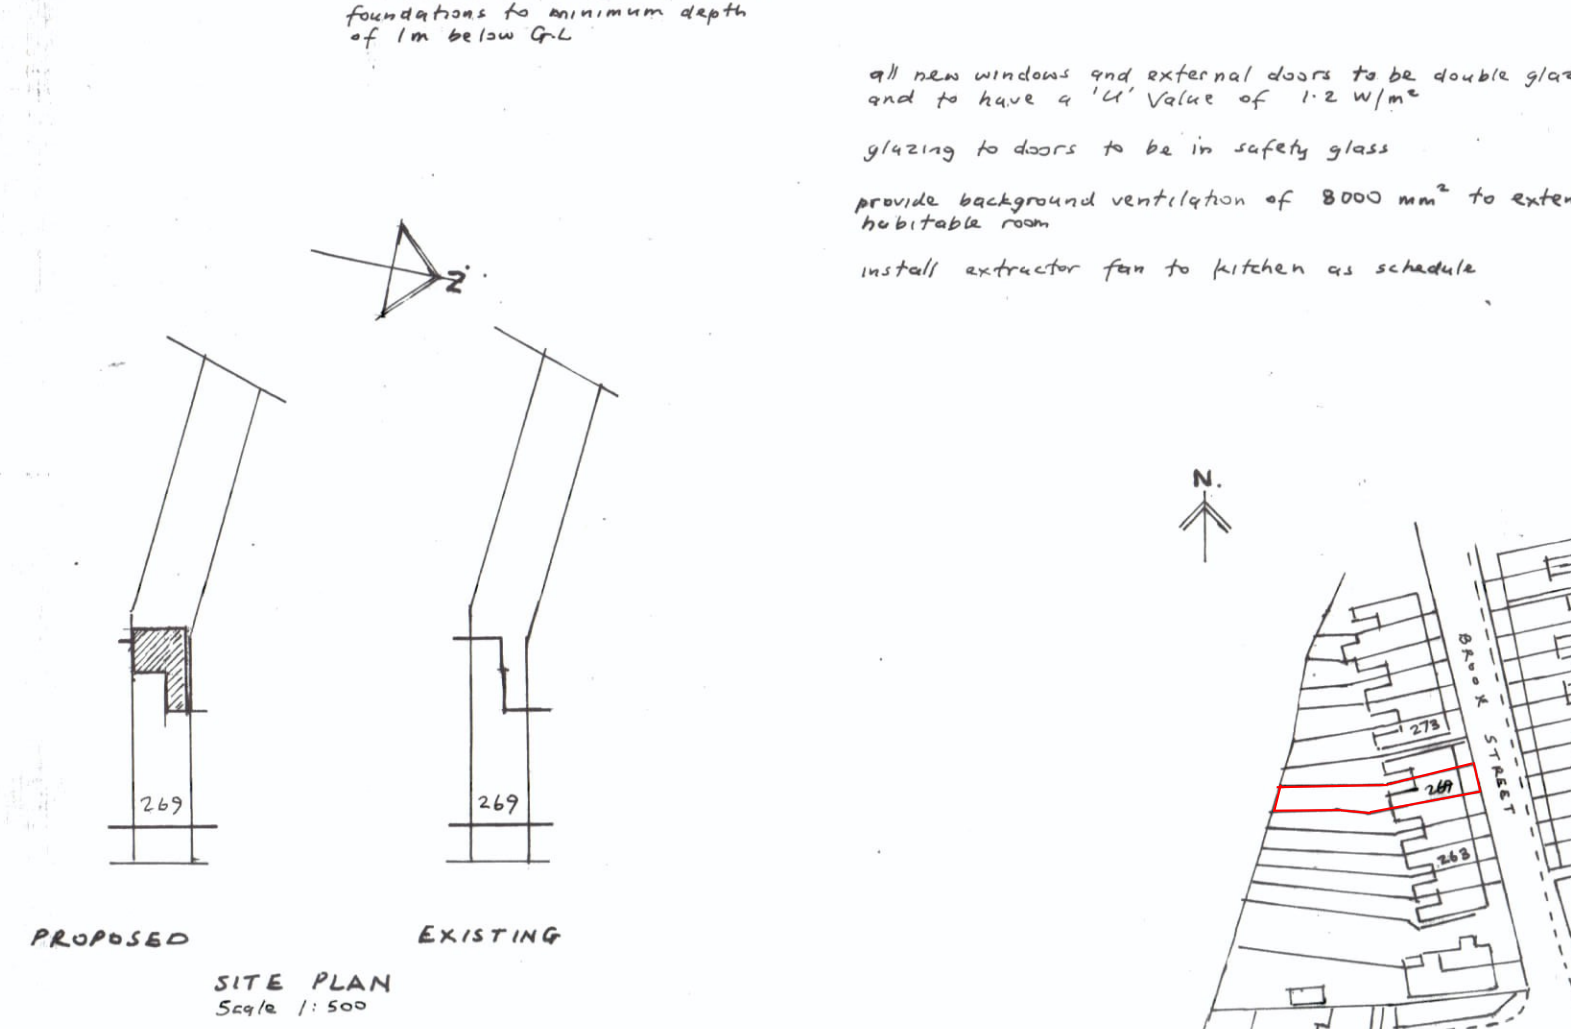 foundations to minimum depth
of 1m below G.L
all new windows and external doors to be double glaz
and to have a 'U' Value of 1.2 W/m²
glazing to doors to be in safety glass
provide background ventilation of 8000 mm² to exten
habitable room
install extractor fan to kitchen as schedule
N
N.
BROOK STREET
273
269
263
269
269
PROPOSED
EXISTING
SITE PLAN
Scale 1:500